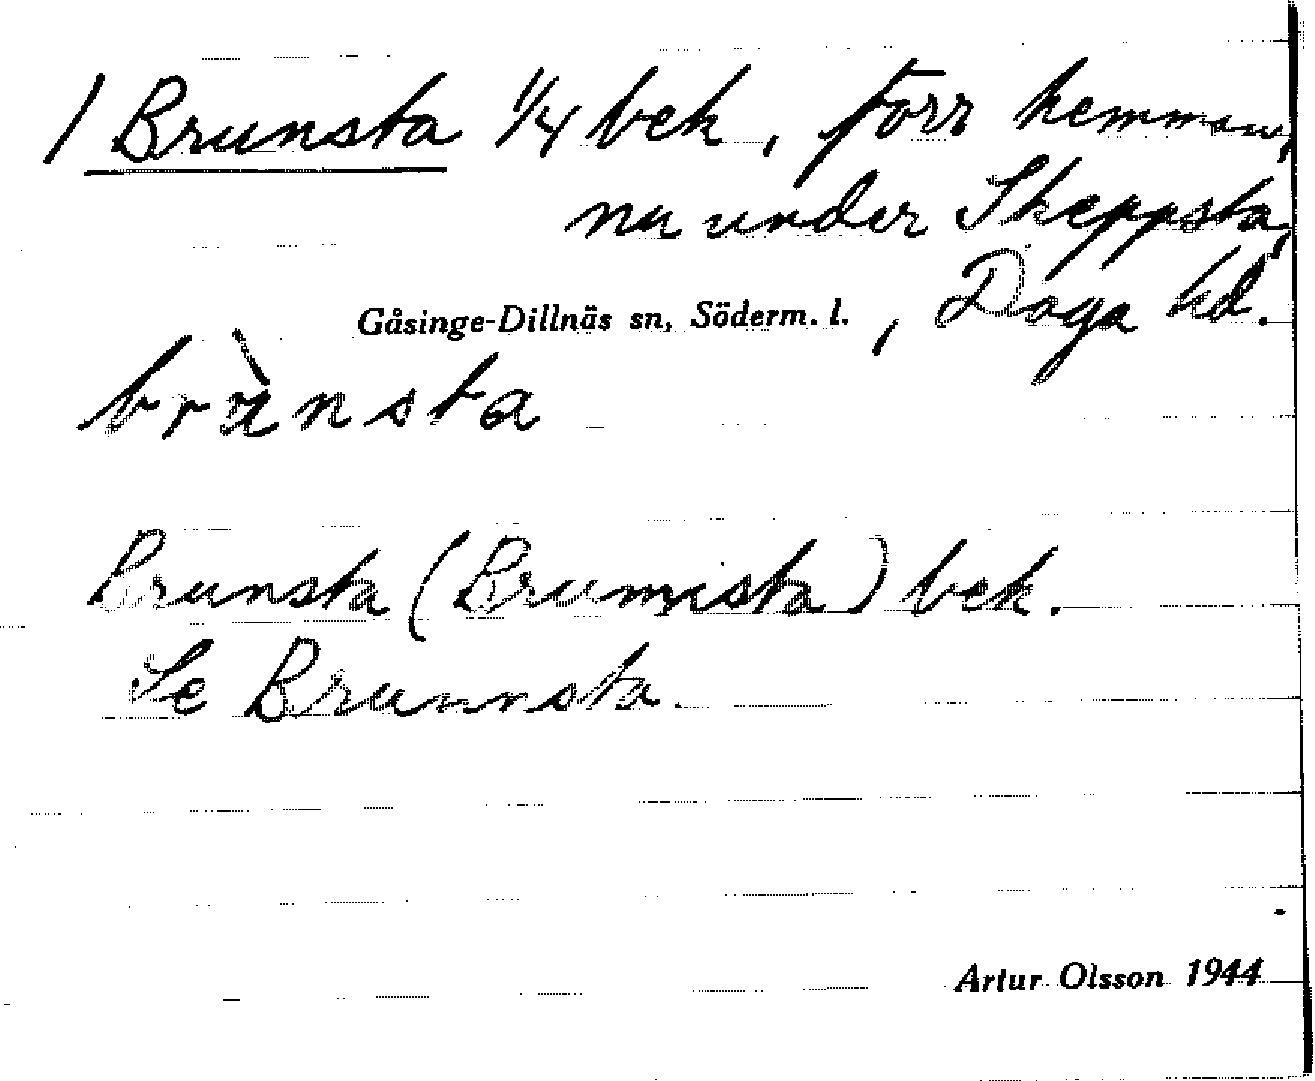 / Brunsta 1/4 bek, förr hemman,
nu under Skeppsta,
Gåsinge-Dillnäs sn, Söderm. l., Daga hd.
brùnsta
Brunsta (Brumista) bek.
Se Brunnsta.
Artur Olsson 1944